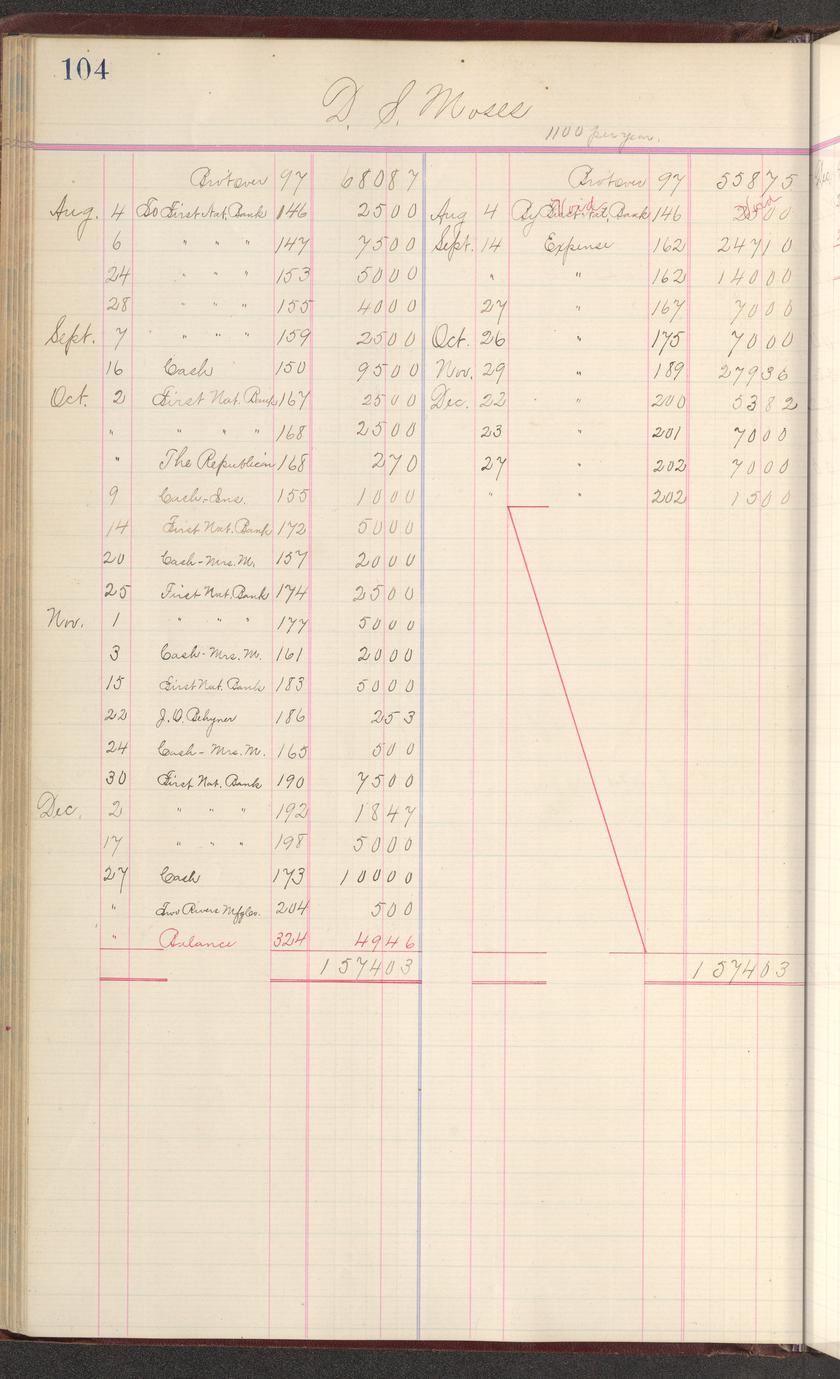 104
D. S. Moses
1100 per year.
Brot over 97 680 87 Brot over 97 558 75
Aug. 4 To First Nat. Bank 146 25 00 Aug 4 By First Nat. Bank 146 25 00
Void Void
6 " " " 147 75 00 Sept. 14 Expense 162 247 10
24 " " " 153 50 00 " " 162 140 00
28 " " " 155 40 00 27 " 167 70 00
Sept. 7 " " " 159 25 00 Oct. 26 " 175 70 00
16 Cash 150 95 00 Nov. 29 " 189 279 36
Oct. 2 First Nat. Bank 167 25 00 Dec. 22 " 200 53 82
" " " " 168 25 00 23 " 201 70 00
" The Republican 168 2 70 27 " 202 70 00
9 Cash-Ins. 155 10 00 " " 202 15 00
14 First Nat. Bank 172 50 00
20 Cash-Mrs. M. 157 20 00
25 First Nat. Bank 174 25 00
Nov. 1 " " " 177 50 00
3 Cash-Mrs. M. 161 20 00
15 First Nat. Bank 183 50 00
22 J. O. Behymer 186 2 53
24 Cash-Mrs. M. 165 5 00
30 First Nat. Bank 190 75 00
Dec. 2 " " " 192 18 47
17 " " " 198 50 00
27 Cash 173 100 00
" Two Rivers Mfg Co. 204 5 00
" Balance 324 49 46
1574 03 1574 03